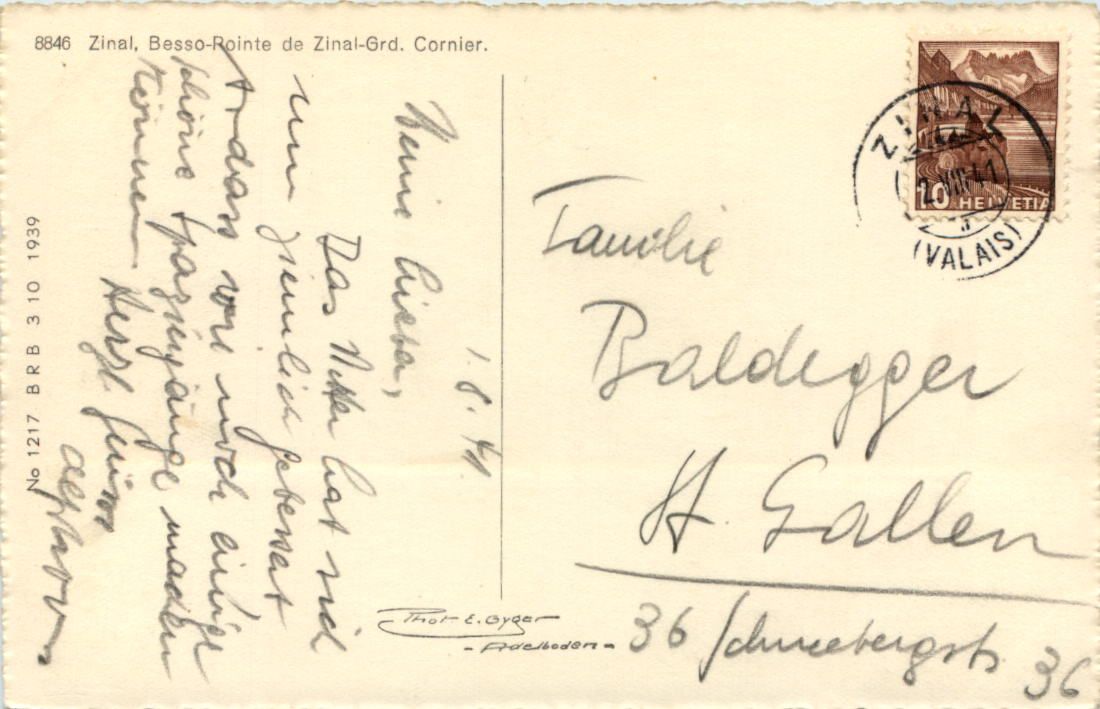 8846 Zinal, Besso-Pointe de Zinal-Grd. Cornier.
No 1217 B R B 3 10 1939
1. 8. 41
Meine Lieben,
Das Wetter hat sich
nun ziemlich gebessert
dass wir noch einige
schöne Spaziergänge machen
können
Herzl. Grüsse
ZINAL
2. VIII. 41
(VALAIS)
10 HELVETIA
Familie
Baldegger
St. Gallen
36 Schneebergstr. 36
Phot E. Gyger
- Adelboden -